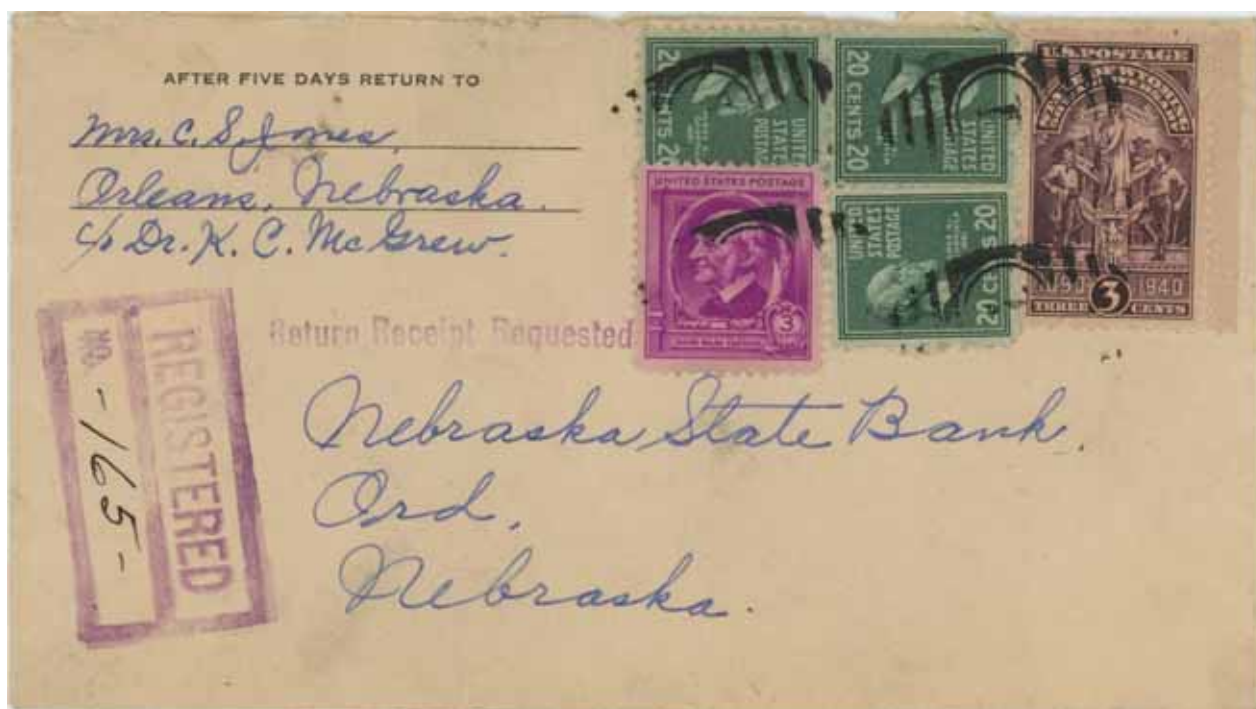 AFTER FIVE DAYS RETURN TO
Mrs. C. S. Jones,
Orleans, Nebraska.
c/o Dr. K. C. McGrew.
20 CENTS 20
UNITED STATES POSTAGE
20 CENTS 20
UNITED STATES POSTAGE
U.S. POSTAGE
1890 1940
3
THREE CENTS
UNITED STATES POSTAGE
3
UNITED STATES POSTAGE
20 CENTS 20
Return Receipt Requested
REGISTERED
NO. -165-
Nebraska State Bank,
Ord,
Nebraska.